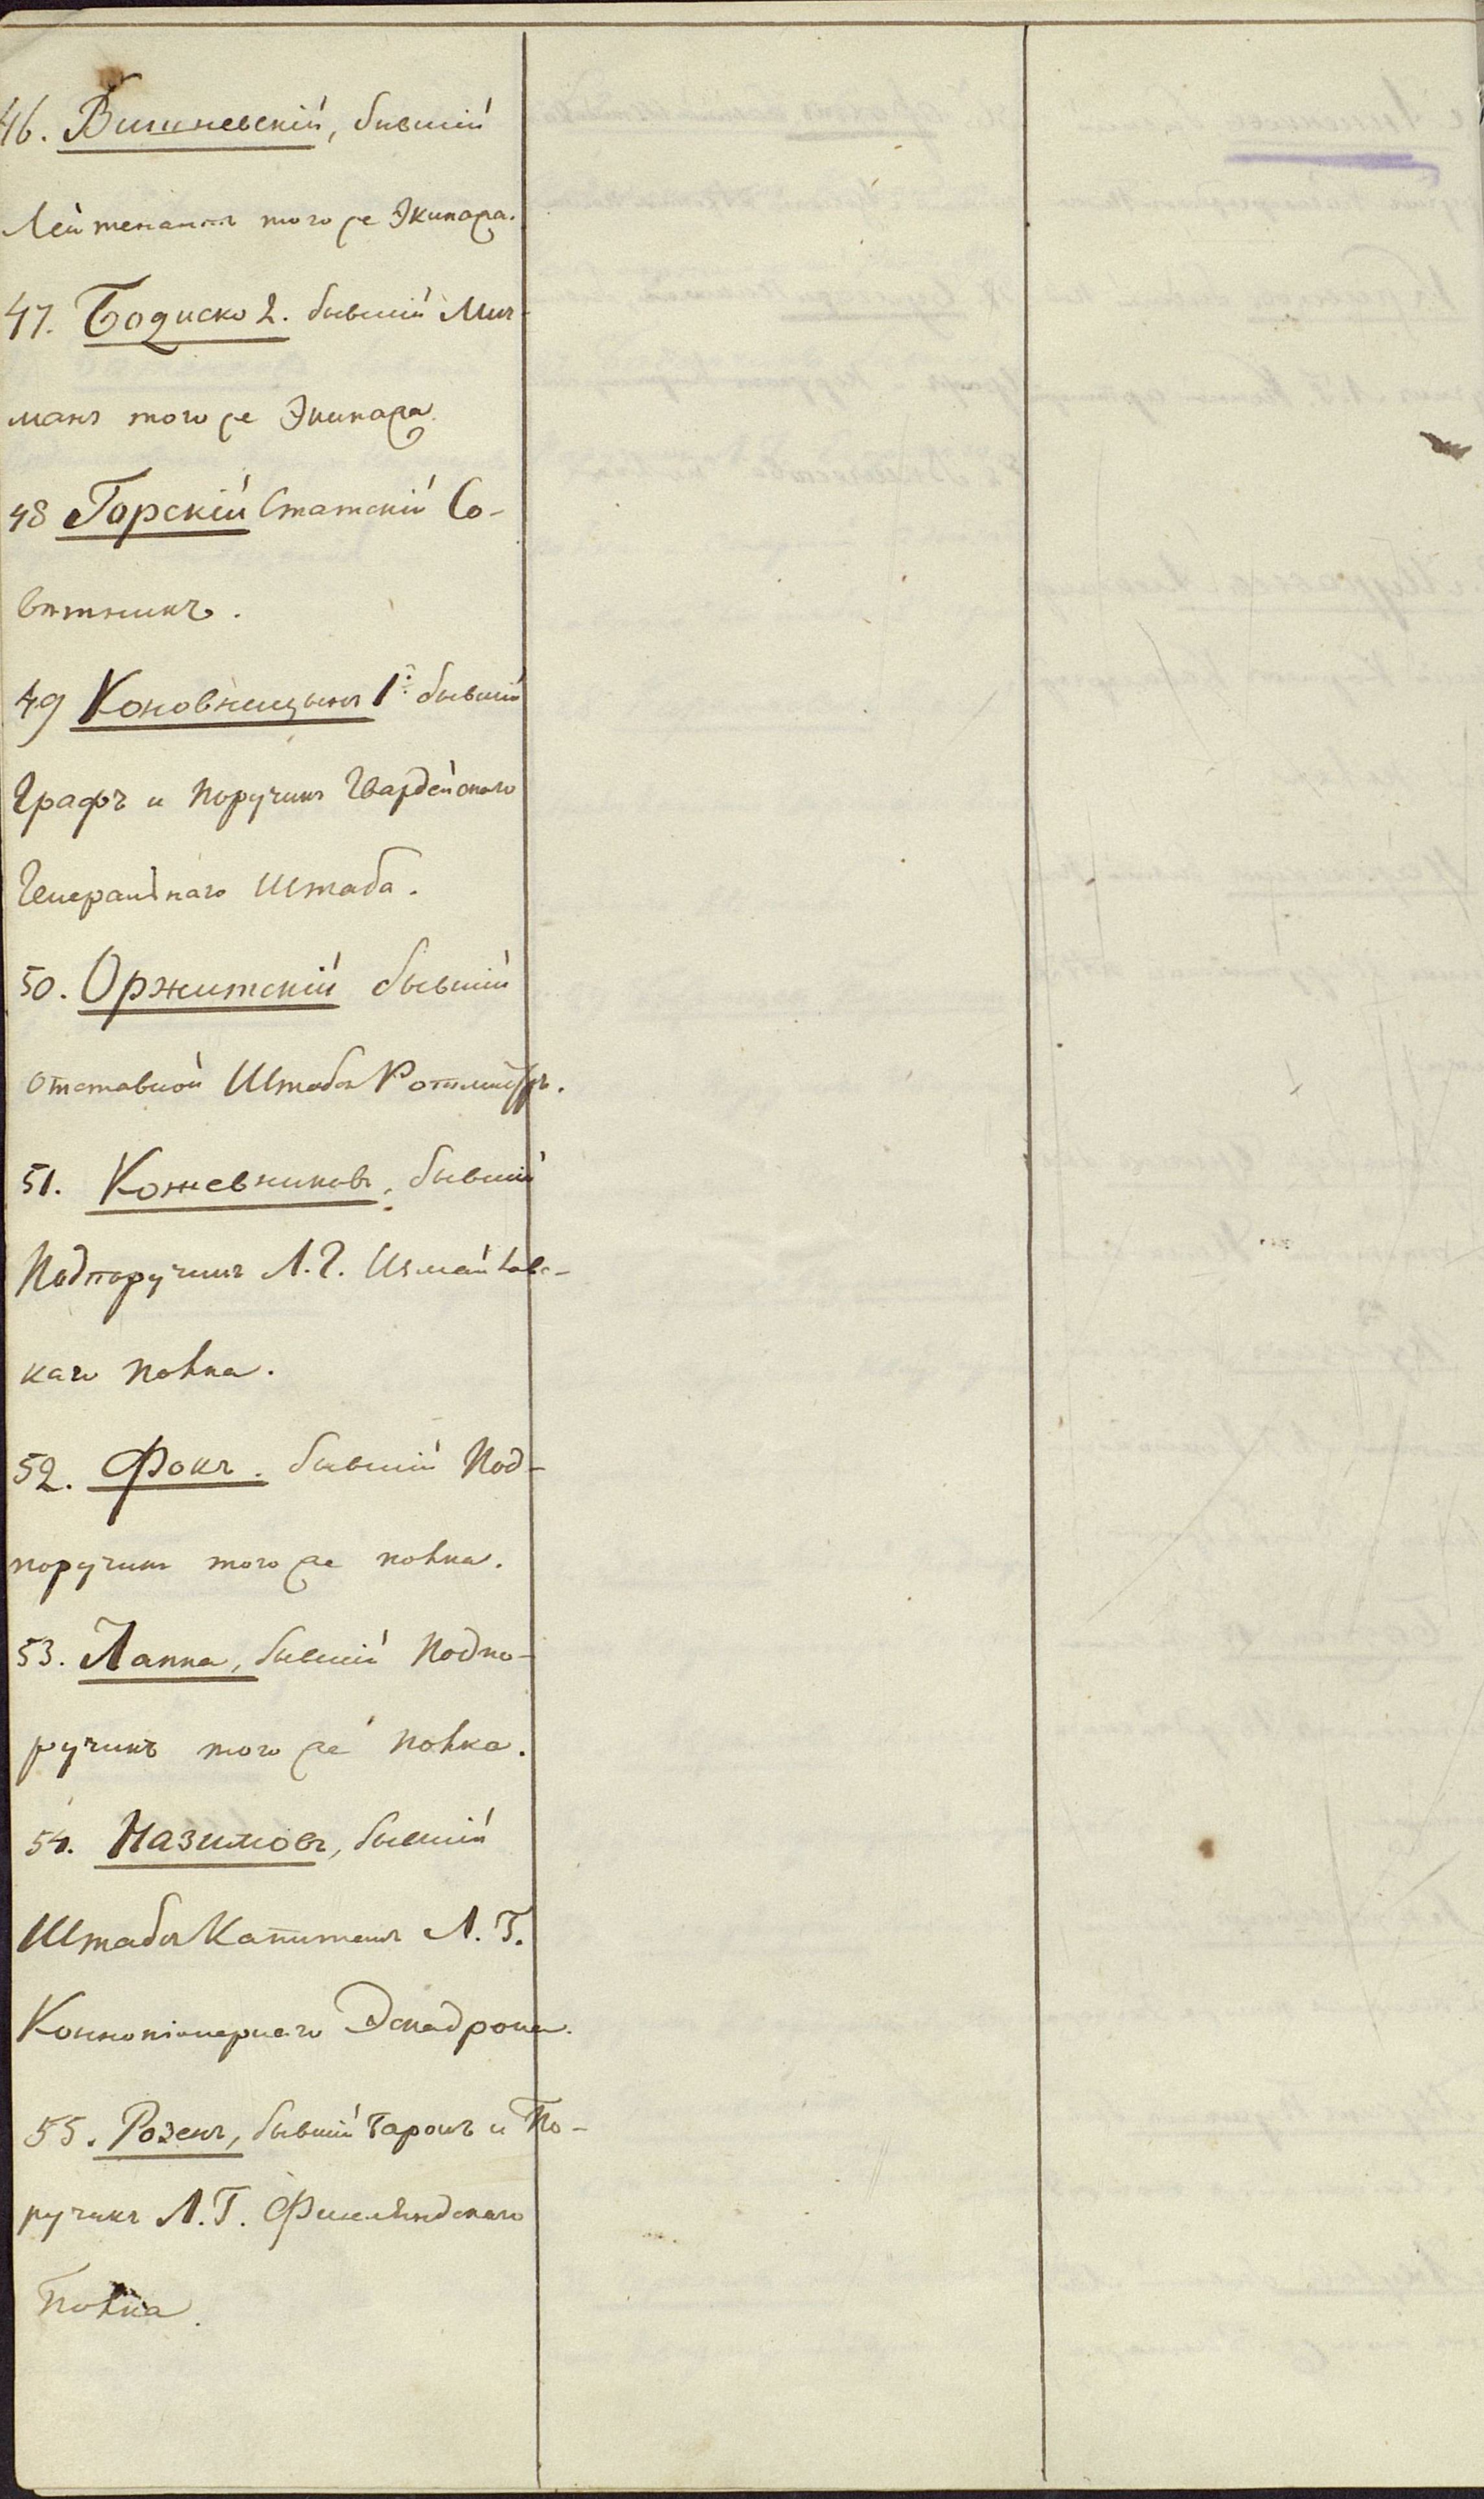 46. Вишневскій, бывшій
Лейтенантъ того же Экипажа.
47. Бодиско 2. бывшій Мич-
манъ того же Экипажа.
48 Горскій Статскій Со-
вѣтникъ.
49 Коновницынъ 1й бывшій
Графъ и Поручикъ Гвардейскаго
Генеральнаго Штаба.
50. Оржитскій бывшій
отставной Штабъ Ротмистръ.
51. Кожевниковъ, бывшій
Подпоручикъ Л. Г. Измайловс-
каго полка.
52. Фокъ. бывшій Под-
поручикъ того же полка.
53. Лаппа, бывшій Подпо-
ручикъ того же полка.
54. Назимовъ, бывшій
Штабъ Капитанъ Л. Г.
Коннопіонернаго Эскадрона.
55. Розенъ, бывшій Баронъ и По-
ручикъ Л. Г. Финляндскаго
Полка.